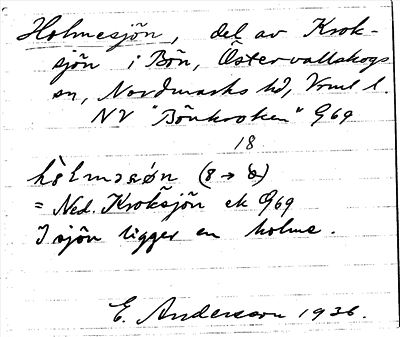 Holmesjön, del av Krok-
sjön i Bön, Östervallskogs
sn, Nordmarks hd, Vrml l.
NV "Bönkroken" G69
18
hòlməsøn (8 → 8)
= Ned. Kroksjön ek G69
I sjön ligger en holme.
E. Andersson 1936.